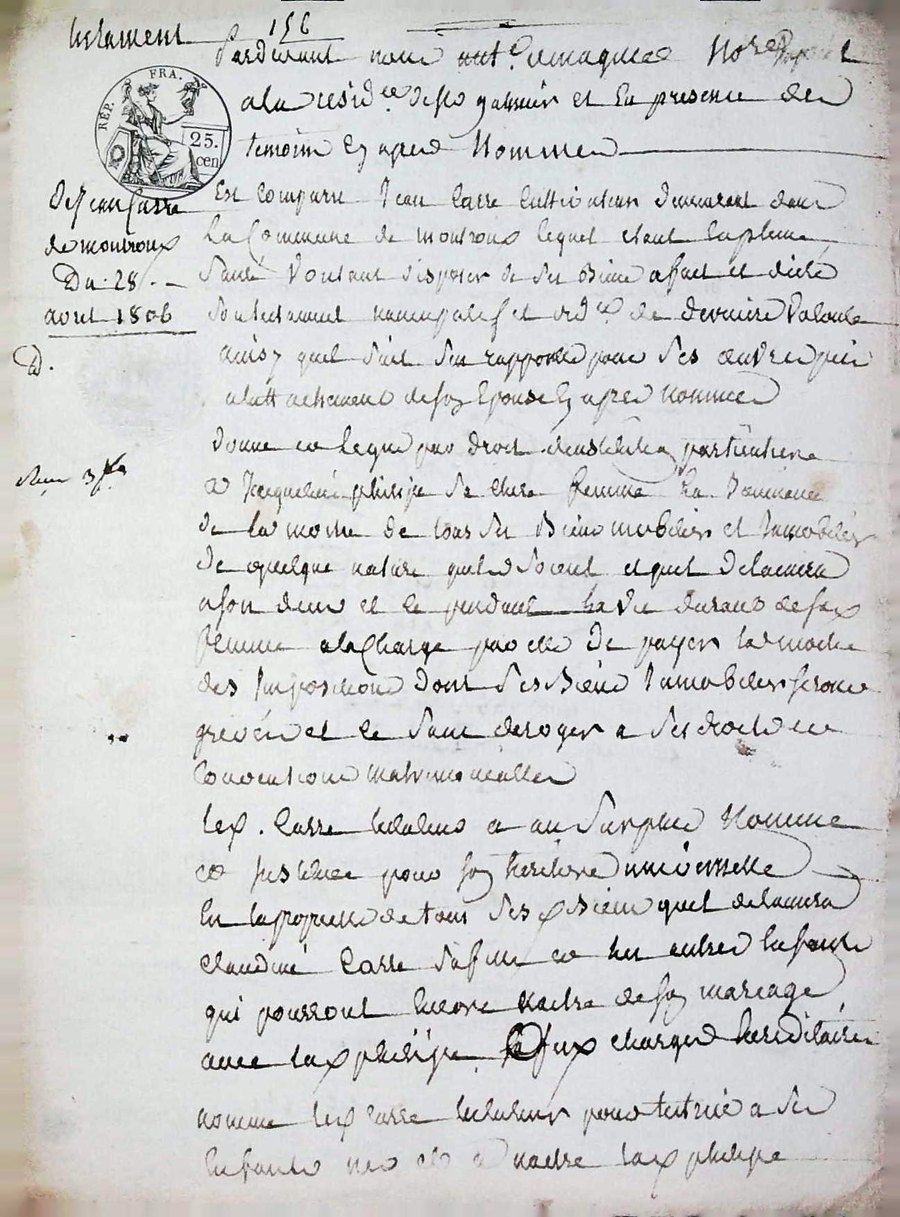 testament
156
Pardevant nous ant.e Nore
a la residce de st galmier et En presence des
temoins Cy apres Nommés
REP. FRA.
25. cen
De Jean Carre
de montroux
Du 28
aout 1806
D.
Est Comparu Jean Carre Cultivateur demeurant dans
La Commune de montroux lequel etant En pleine
Santé Voulant disposer de Ses Biens a fait et dicté
Son testament et ordce de derniere Volonté
ainsy quil Suit S'en rapporte pour Ses œuvres pies
a l'attachement de son Epouse Cy apres nommée
donne et legue par droit particuliere
a Jacqueline philipe Sa chere femme La Jouissance
de La moitié de tous Ses Biens mobiliers et Immobiliers
de quelque nature quils Soient et quil delaissera
a son deces et Ce pendant La Vie durant de sa d
femme a la Charge par elle de payer la moitié
des Impositions dont Ses Biens Immobiliers Seront
grevés et Ce Sans deroger a Ses droits et
Conventions matrimonialles
Led. Carre testateur a au Surplus Nommé
et Institué pour son heritiere universelle
En la proprieté de tous Ses d Biens quil delaissera
Claudine Carre Sa fille et les autres Enfants
qui pourront Encore naitre de son mariage
avec lad philipe aux charges hereditaires
nomme led Carre testateur pour tutrice a Ses
Enfants nés et a naitre lad philipe